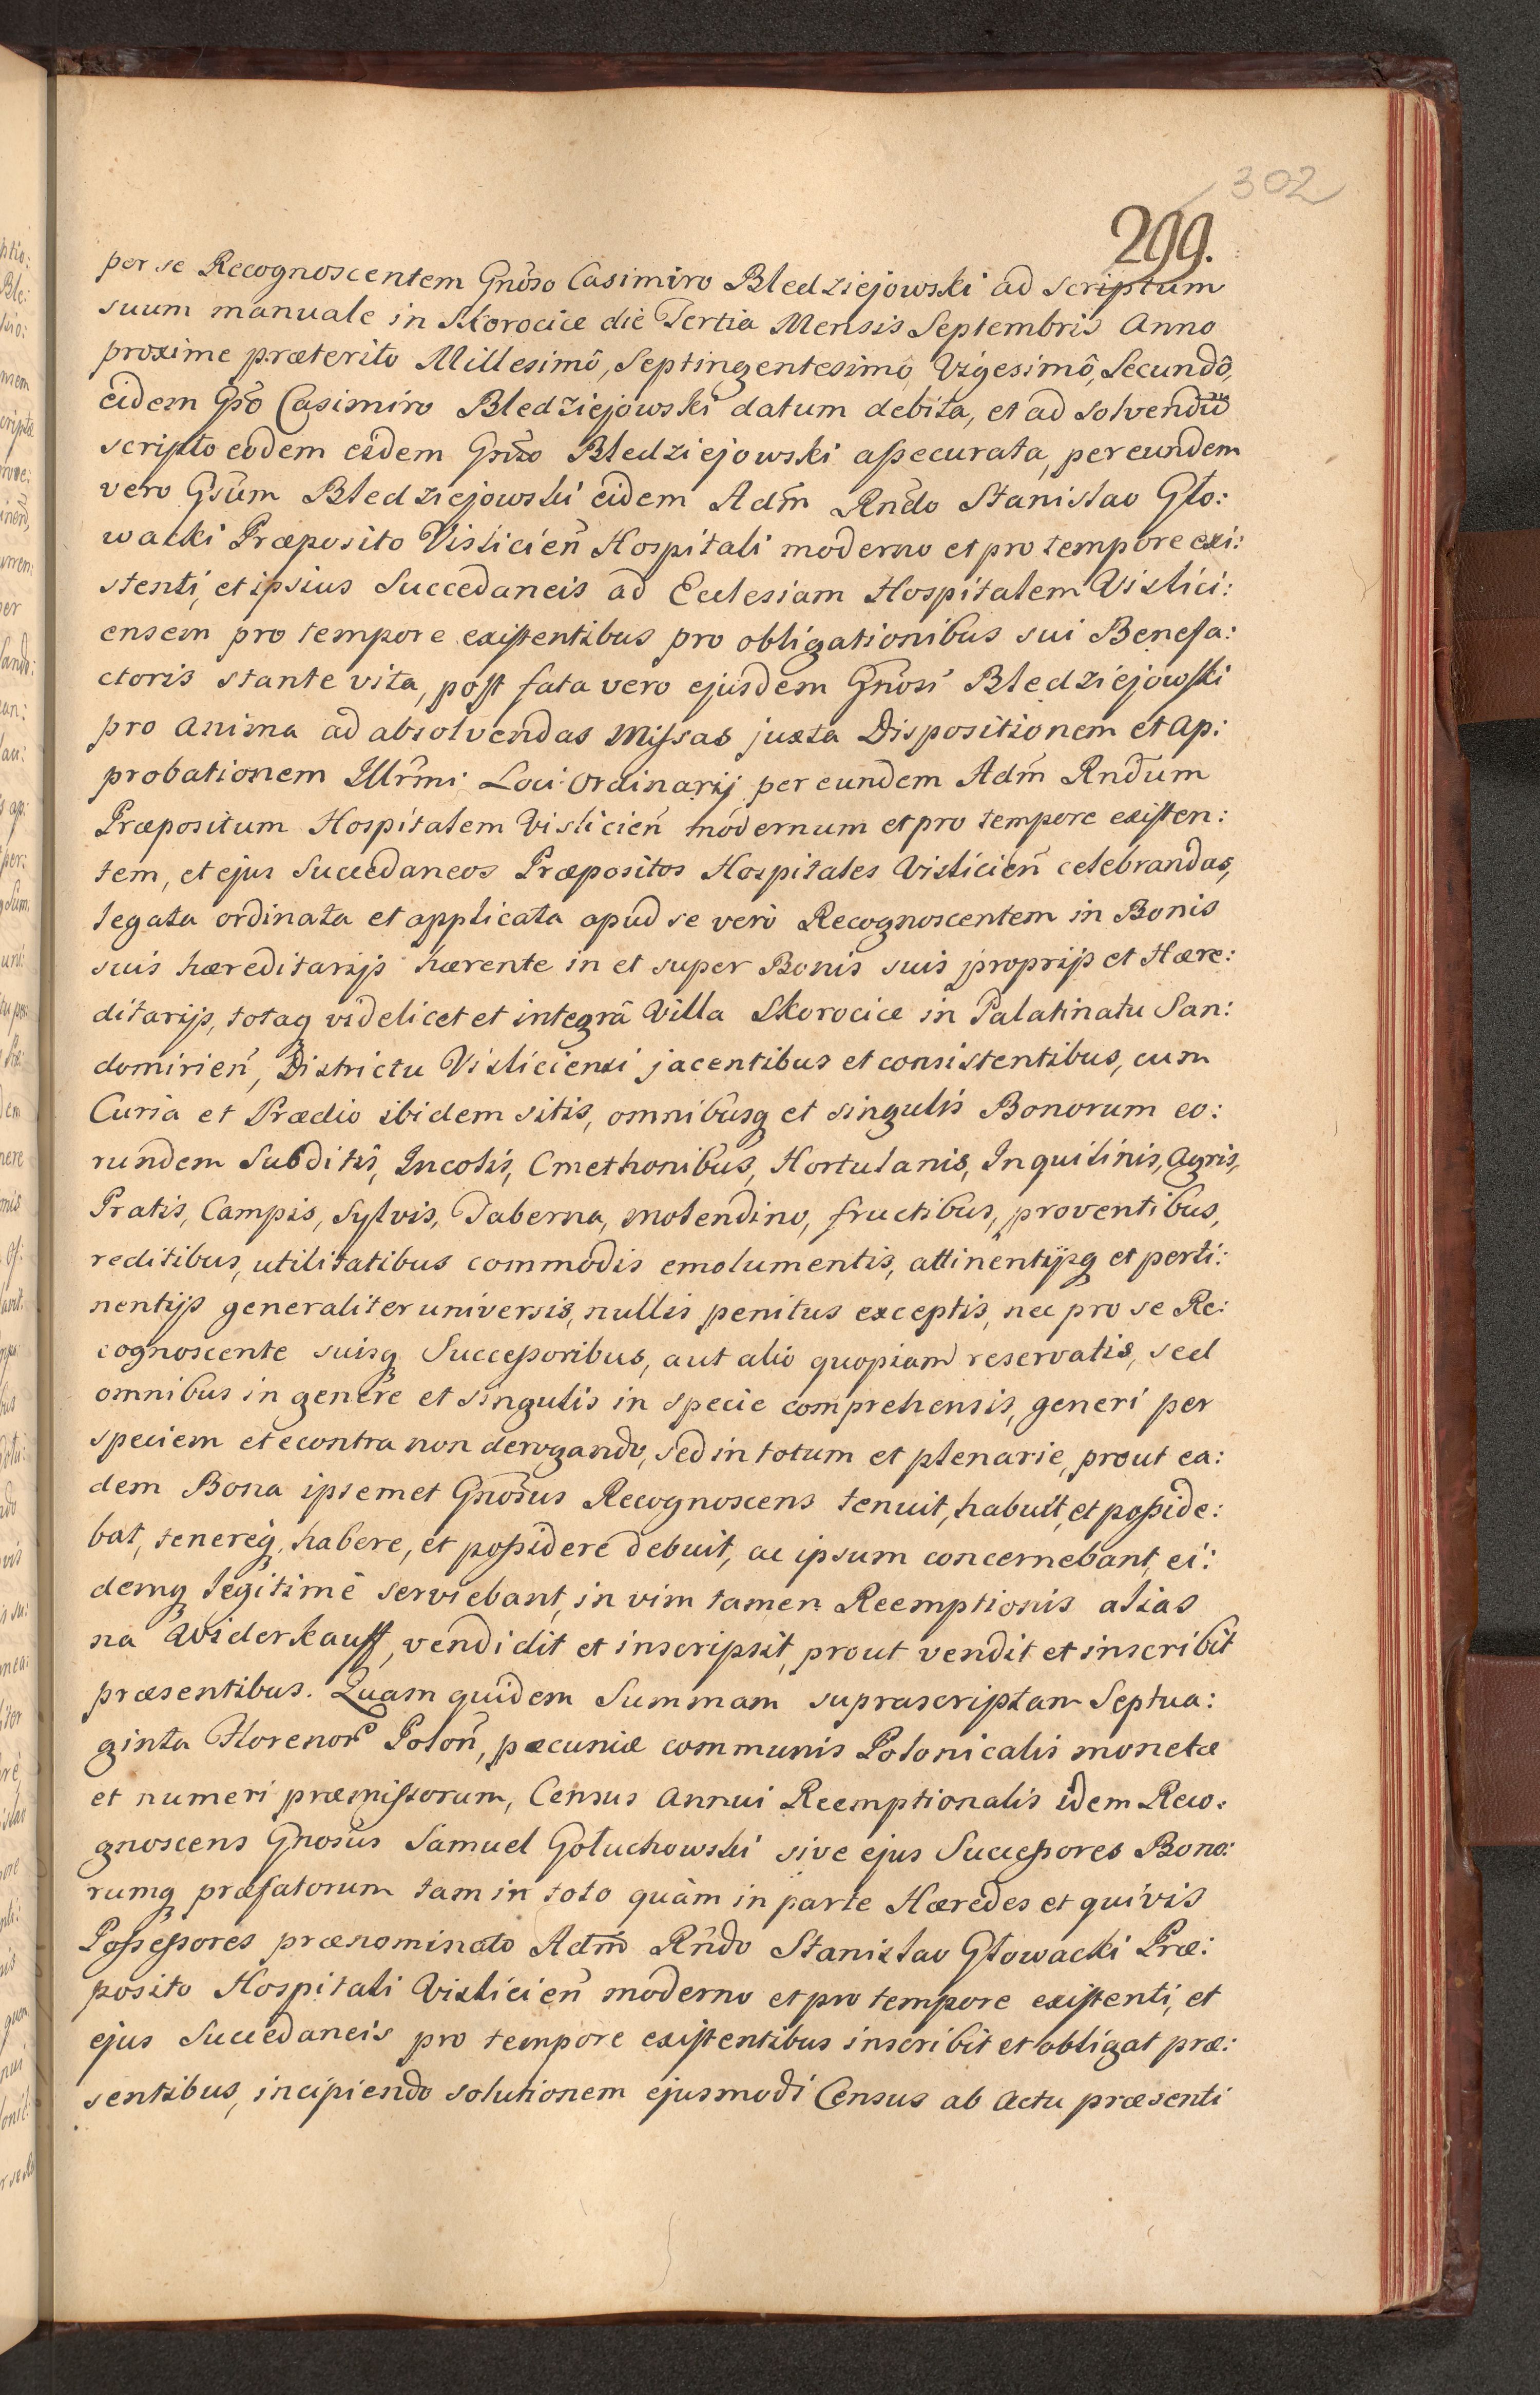 302
299.
per se Recognoscentem Gnõso Casimiro Bledziejowski ad scriptum
suum manuale in Skorocice die Tertia Mensis Septembris Anno
proxime præterito Millesimô, Septingentesimô, Vigesimô, Secundô,
eidem Gsõ Casimiro Bledziejowski datum debita, et ad solvendũ
scripto eodem eidem Gnõ Bledziejowski aſsecurata, per eundem
vero Gsũm Bledziejowski eidem Adm̃ Rñdo Stanislao Gło:
wacki Præposito Visliciẽn Hospitali moderno et pro tempore exi:
stenti, et ipsius Succedaneis ad Ecclesiam Hospitalem Vislici:
ensem pro tempore existentibus pro obligationibus sui Benefa:
ctoris stante vita, post fata vero ejusdem Gñosi Bledziejowski
pro anima ad absolvendas Miſsas juxta Dispositionem et Ap:
probationem Illr̃mi Loci Ordinarij per eundem Adm̃ Rñdum
Præpositum Hospitalem Visliciẽn modernum et pro tempore existen:
tem, et ejus Succedaneos Præpositos Hospitales Visliciẽn celebrandas,
legata ordinata et applicata apud se verò Recognoscentem in Bonis
suis hæreditarijs hærente in et super Bonis suis proprijs et Hære:
ditarijs, totaq videlicet et integrâ Villa Skorocice in Palatinatu San:
domiriẽn, Districtu Visliciensi jacentibus et consistentibus, cum
Curia et Prædio ibidem sitis, omnibusq et singulis Bonorum eo:
rundem Subditis, Incolis, Cmethonibus, Hortulanis, Inquilinis, Agris,
Pratis, Campis, Sylvis, Taberna, Molendino, fructibus, proventibus,
reditibus, utilitatibus commodis emolumentis, attinentijsq et perti:
nentijs generaliter universis, nullis penitus exceptis, nec pro se Re:
cognoscente suisq Succeſsoribus, aut aliô quopiam reservatis, sed
omnibus in genere et singulis in specie comprehensis, generi per
speciem et econtra non derogando, sed in totum et plenarie, prout ea:
dem Bona ipsemet Gnõsus Recognoscens tenuit, habuit, et poſside:
bat, tenereq, habere, et poſsidere debuit, ac ipsum concernebant, ei:
demq legitimè serviebant, in vim tamen Reemptionis alias
na Widerkauff, vendidit et inscripsit, prout vendit et inscribit
præsentibus. Quam quidem Summam suprascriptam Septua:
ginta Florenor Polõn, pecuniæ communis Polonicalis monetæ
et numeri præmiſsorum, Census Annui Reemptionalis idem Reco:
gnoscens Gnosus Samuel Gołuchowski sive ejus Succeſsores Bono:
rumq præfatorum tam in toto quàm in parte Hæredes et quivis
Poſseſsores prænominato Adm̃ Rñdo Stanislao Głowacki Præ:
posito Hospitali Visliciẽn moderno et pro tempore existenti, et
ejus Succedaneis pro tempore existentibus inscribit et obligat præ:
sentibus, incipiendo solutionem ejusmodi Census ab Actu præsenti